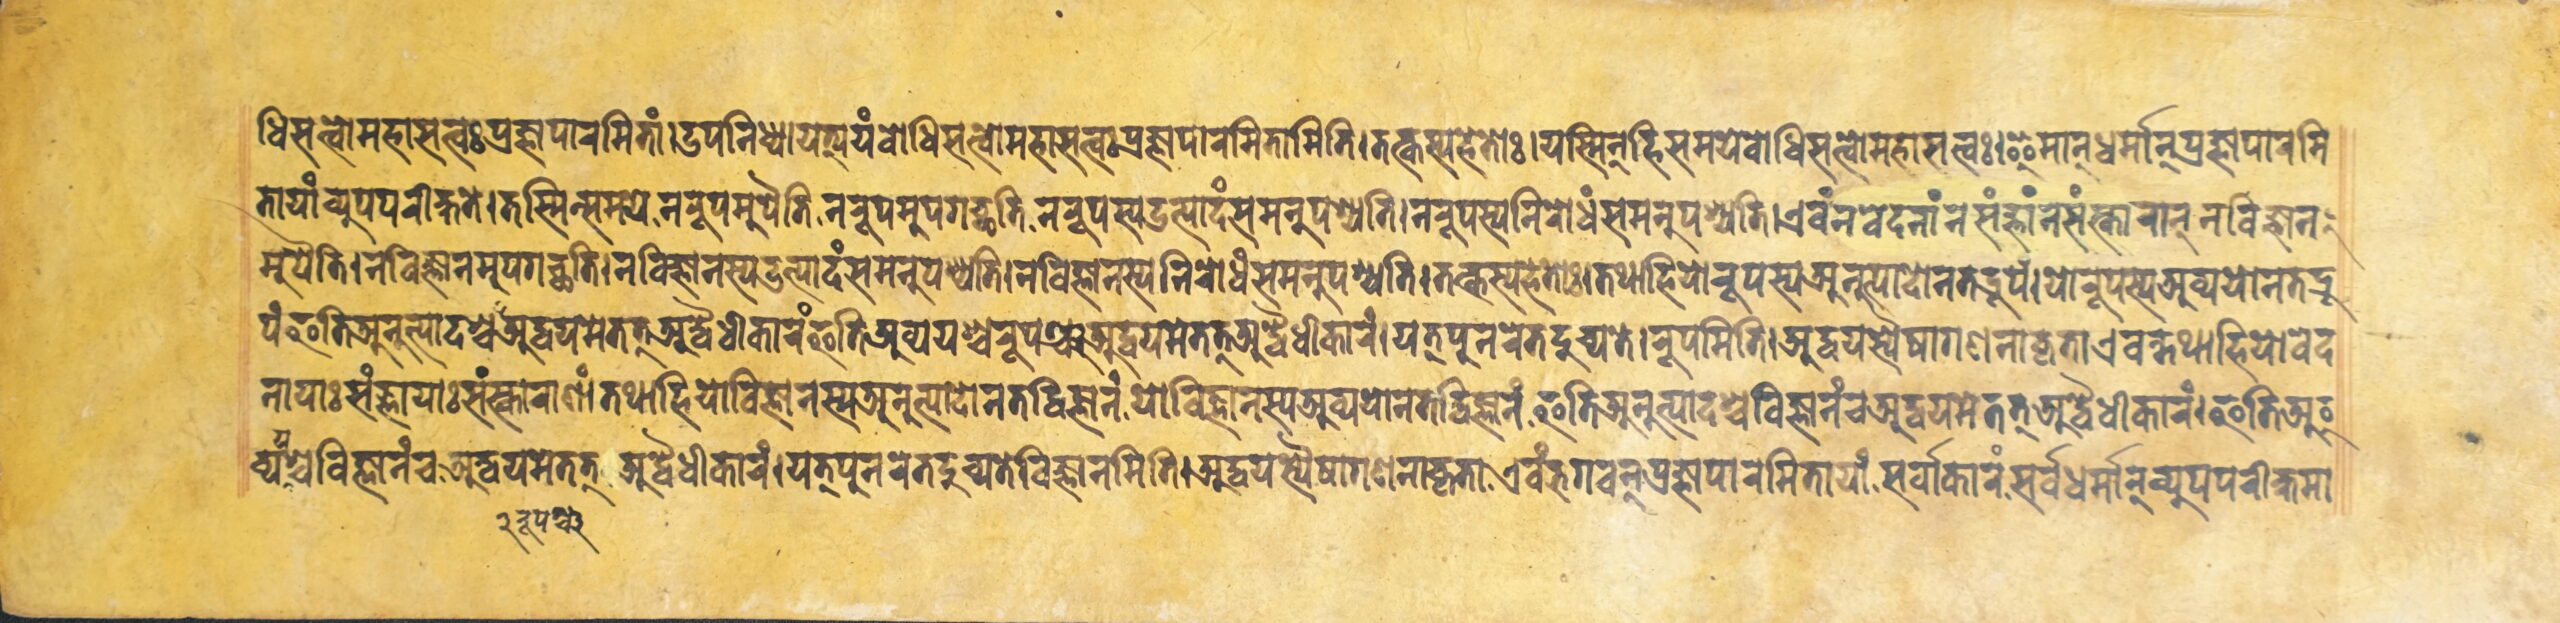 धिसत्त्वोमहासत्त्वःप्रज्ञापारमितां।उपनिध्यायत्ययंबोधिसत्त्वोमहासत्त्वःप्रज्ञापारमितामिति।तत्कस्यहेतोः।यस्मिन्हिसमयेबोधिसत्त्वोमहासत्त्वः।इमान्धर्मान्प्रज्ञापारमि
तायांव्युपपरीक्षते।तस्मिन्समये नरूपमुपैति नरूपमुपगच्छति नरूपस्यउत्पादंसमनुपश्यति।नरूपस्यनिरोधंसमनुपश्यति।एवंनवेदनांनसंज्ञांनसंस्कारान् नविज्ञान
मुपैति।नविज्ञानमुपगच्छति।नविज्ञानस्यउत्पादंसमनुपश्यति।नविज्ञानस्यनिरोधंसमनुपश्यति।तत्कस्यहेतोः।तथाहियोरूपस्यअनुत्पादोनतद्रूपं।योरूपस्यअव्ययोनतद्रू
पंइतिअनुत्पादश्चअद्वयमेतत्अद्वैधीकारंइतिअव्ययश्चरूपञ्चअद्वयमेतत्अद्वैधीकारं।यत्पुनरेतदुच्यते।रूपमिति।अद्वयस्यैषागणनाकृताएवन्तथाहियोवेद
नायाःसंज्ञायाःसंस्काराणां।तथाहियोविज्ञानस्यअनुत्पादोनतद्विज्ञानं योविज्ञानस्यअव्ययोनतद्विज्ञानं इतिअनुत्पादश्चविज्ञानंचअद्वयमेतत्अद्वैधीकारं।इतिअ
व्ययश्चविज्ञानंच अद्वयमेतत् अद्वैधीकारं।यत्पुनरेतदुच्यतेविज्ञानमिति।अद्वयस्यैषागणनाकृता एवंभगवन्प्रज्ञापारमितायां सर्वाकारं सर्वधर्मान्व्युपपरीक्षमा
२रूपञ्च३